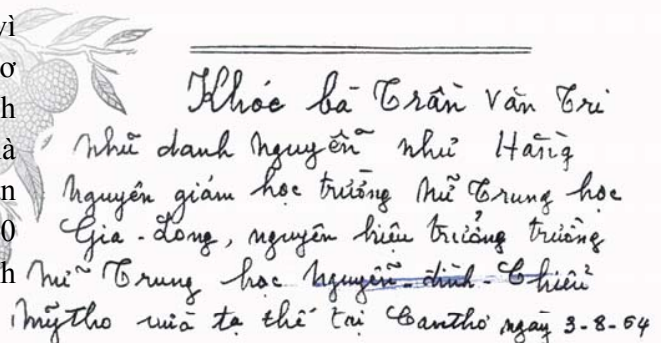 vì
ơ
h
à
n
0
h
Khóc bà Trần Văn Tri
nhũ danh Nguyễn như Hằng
nguyên giám học trường Nữ Trung học
Gia-Long, nguyên hiệu trưởng trường
Nữ Trung học Nguyễn-đình-Chiểu
Mỹtho vừa tạ thế tại Cantho ngày 3-8-64